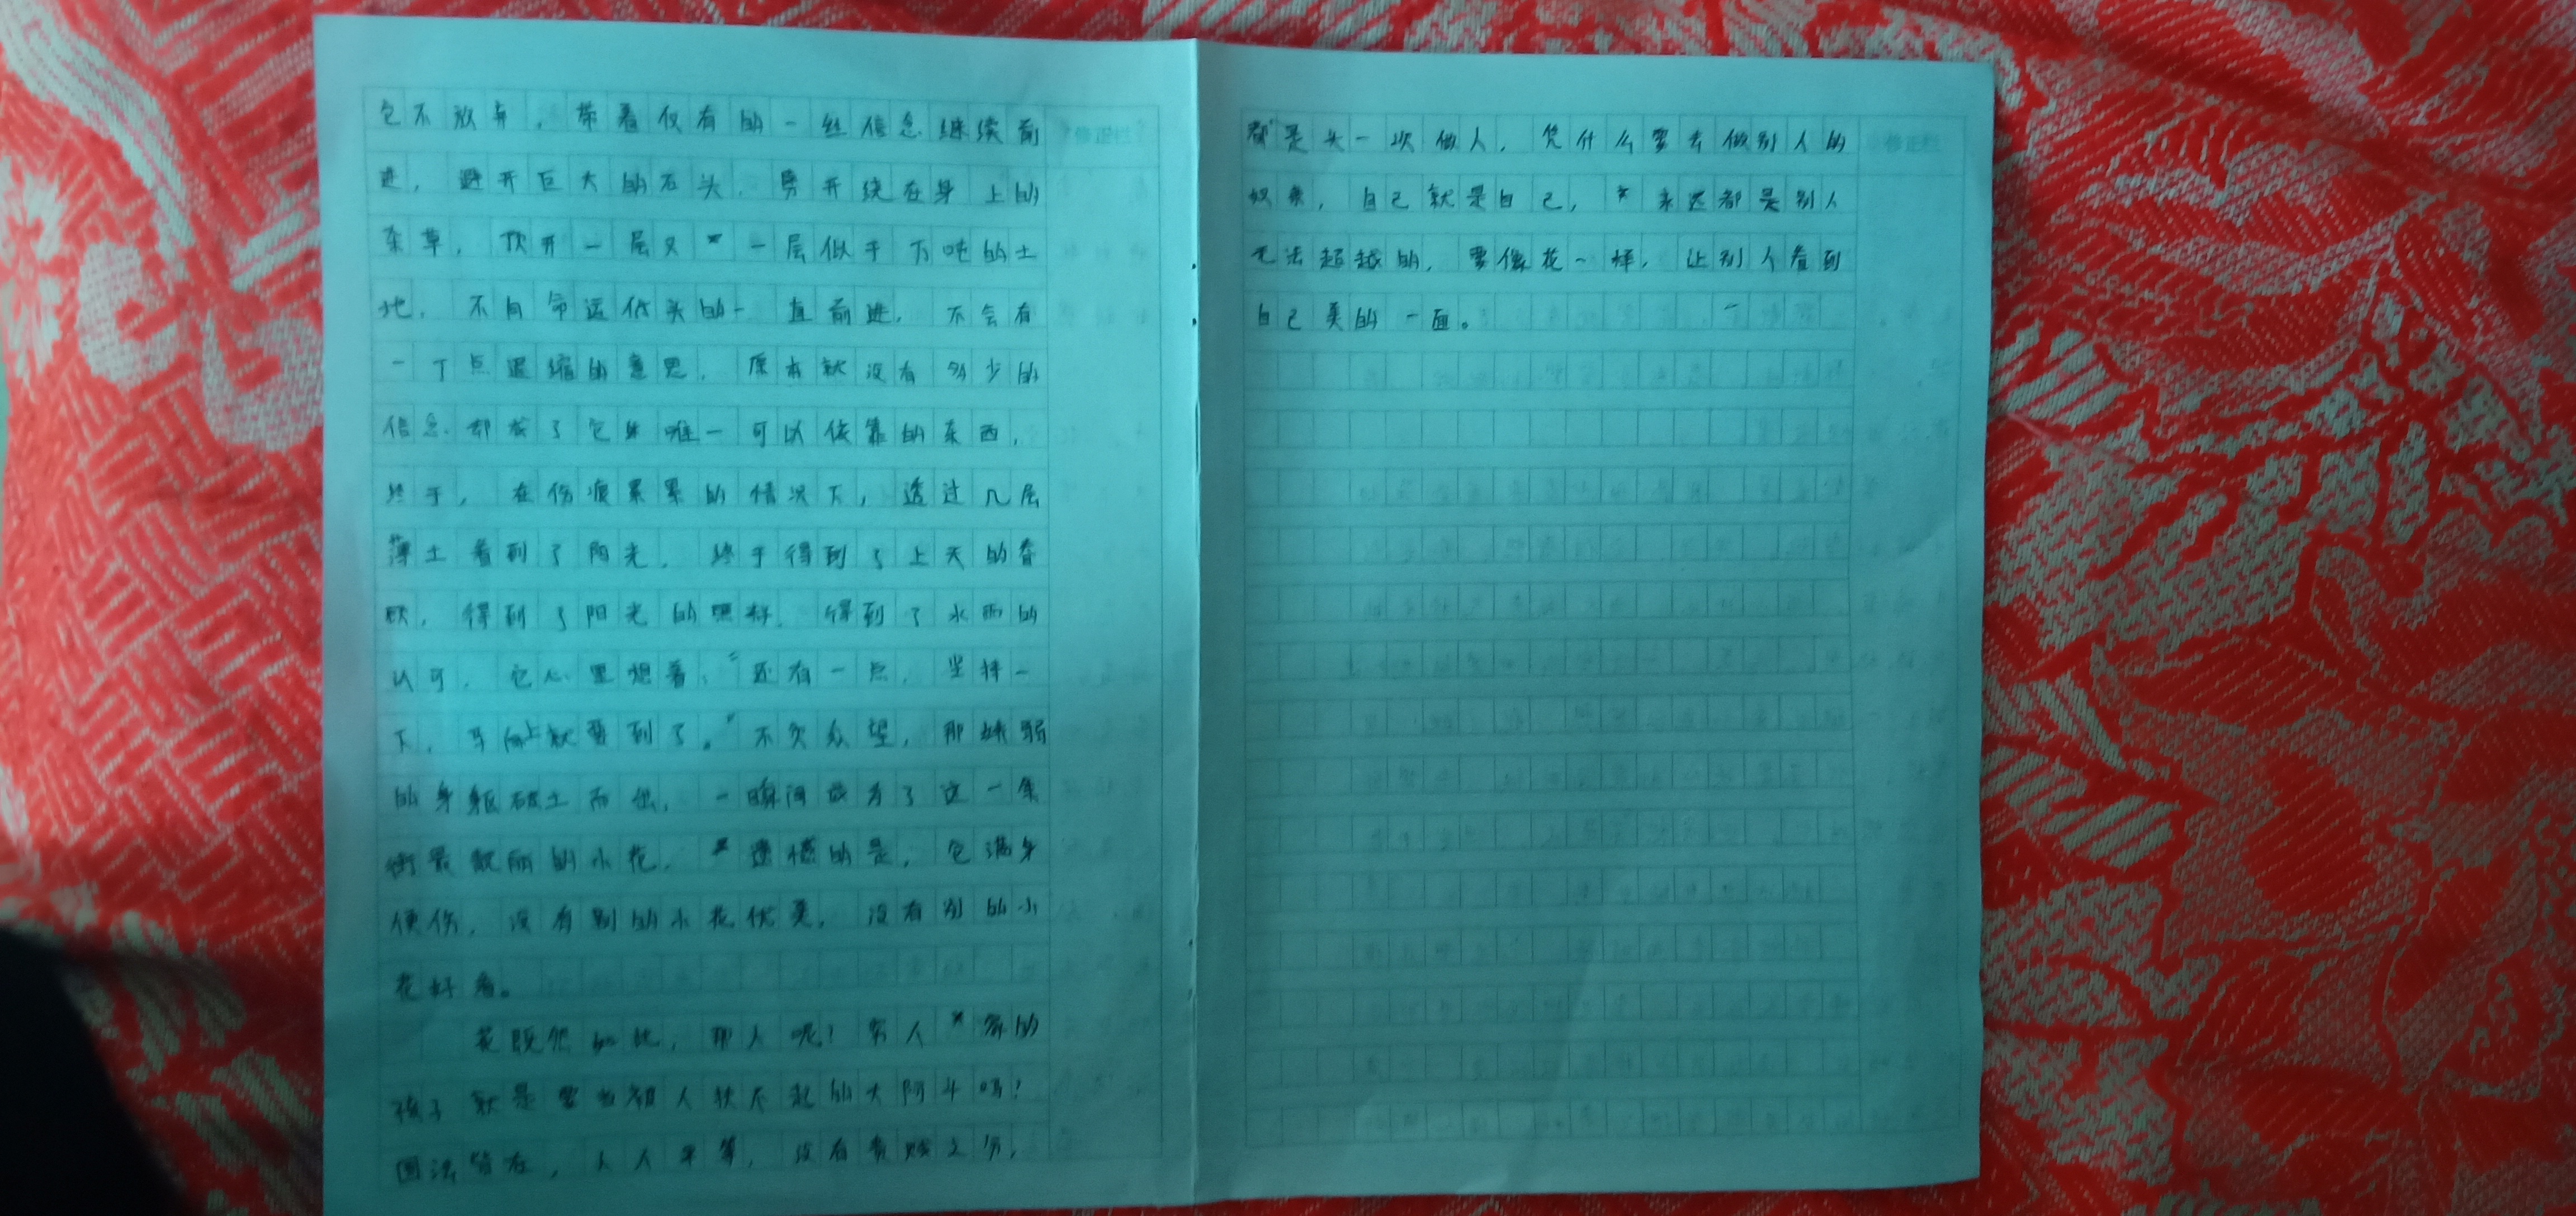 它不放弃，带着仅有的一丝信念继续前
进，避开巨大的石头，劈开绕在身上的
杂草，顶开一层又一层似于万吨的土
地，不向命运低头的一直前进，不会有
一丁点退缩的意思，原本就没有多少的
信念却成了它身唯一可以依靠的东西，
终于，在伤痕累累的情况下，透过几层
薄土看到了阳光，终于得到了上天的眷
顾，得到了阳光的照料，得到了水而的
认可，它心里想着：“还有一点，坚持一
下，马上就要到了。”不欠众望，那娇弱
的身躯破土而出，一瞬间成为了这一条
街最靓丽的小花，遗憾的是，它满身
便伤，没有别的小花优美，没有别的小
花好看。
花既然如此，那人呢？穷人家的
孩子就是要当被人扶不起的大阿斗吗？
国法皆在，人人平等，没有贵贱之分，
都是头一次做人，凭什么要去做别人的
奴隶，自己就是自己，永远都是别人
无法超越的，要像花一样，让别人看到
自己美的一面。